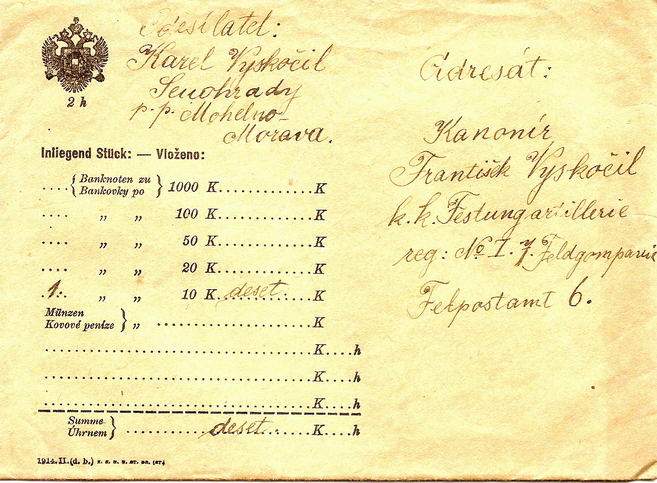 2 h
Odesílatel:
Karel Vyskočil
Senohrady
p. p. Mohelno
Morava.
Adresát:
Kanonír
František Vyskočil
k. k. Festungartillerie
reg: No I. 7. Feldgompanie
Felpostamt 6.
Inliegend Stück: — Vloženo:
.... { Banknoten zu / Bankovky po } 1000 K..............K
.... „ „ 100 K..............K
.... „ „ 50 K..............K
.... „ „ 20 K..............K
.1. „ „ 10 K. deset.....K
Münzen / Kovové peníze } „ ......................K
..............................K....h
..............................K....h
..............................K....h
Summe / Úhrnem } .......deset.......K....h
1914. II. (d. b.)